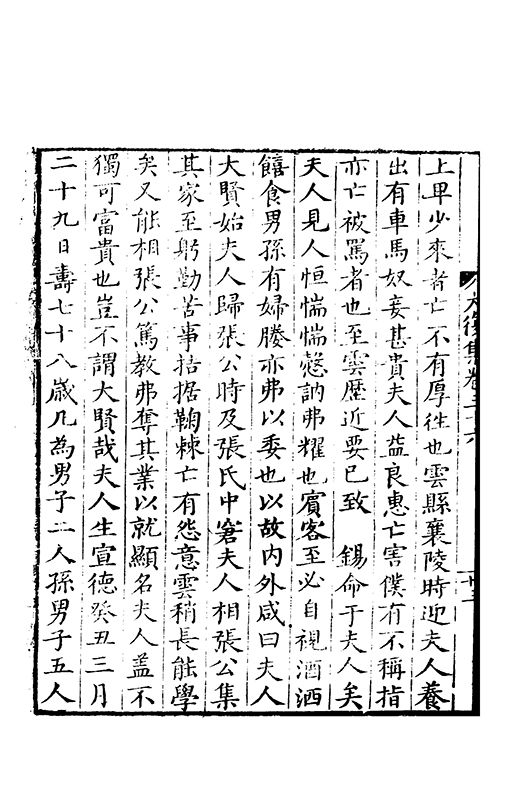 上卑少來者亡不有厚徃也雲縣襄陵時迎夫人養
出有車馬奴妾甚貴夫人益良惠亡害僕有不稱指
亦亡被罵者也至雲歷近要已致　錫命于夫人矣
夫人見人恒惴惴愨訥弗耀也賓客至必自視酒洒
饎食男孫有婦媵亦弗以委也以故內外咸曰夫人
大賢始夫人歸張公時及張氏中窘夫人相張公集
其家至躬勤苦事拮据鞠棘亡有怨意雲稍長能學
矣又能相張公篤教弗奪其業以就顯名夫人盖不
獨可富貴也豈不謂大賢哉夫人生宣德癸丑三月
二十九日壽七十八歳凡為男子二人孫男子五人